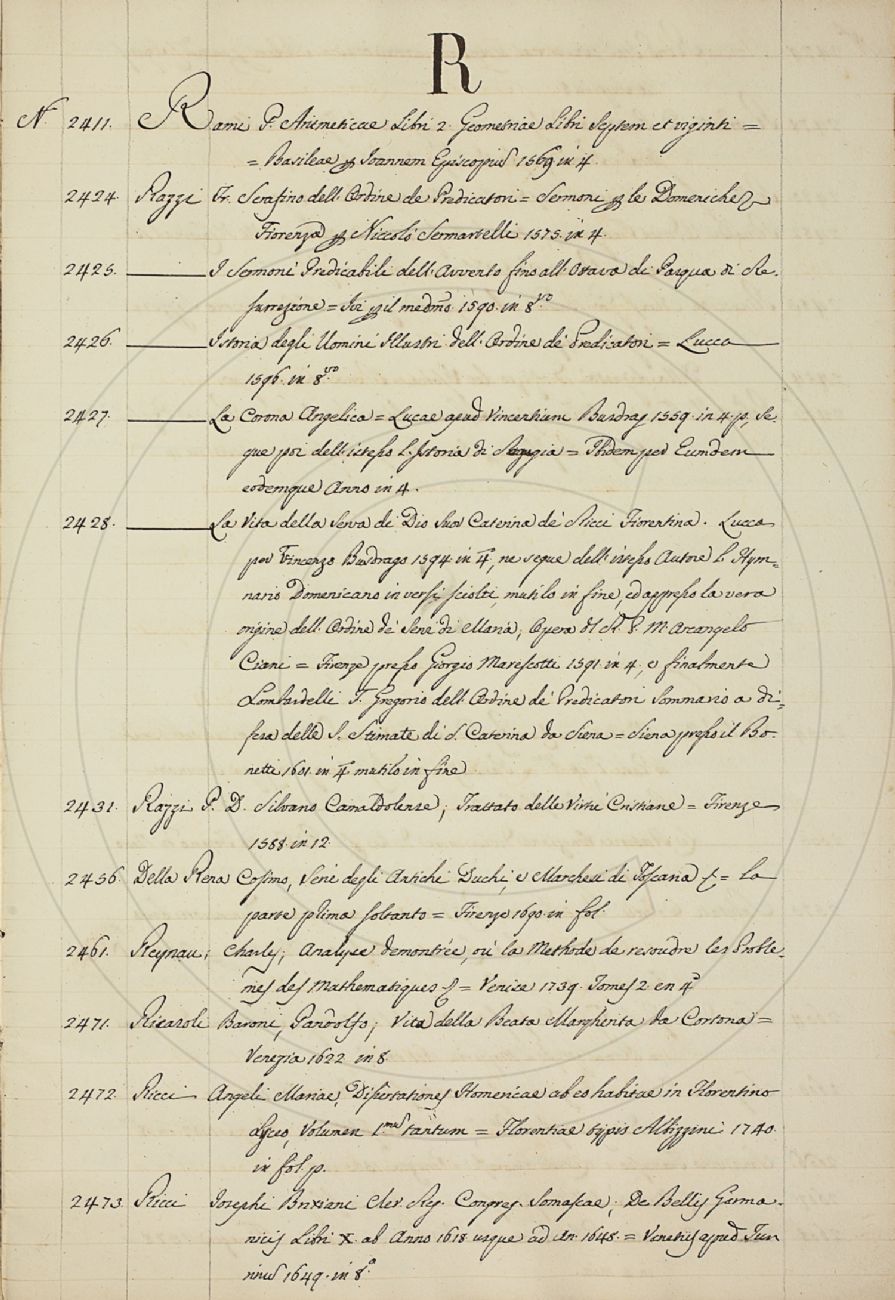 R
N. 2411. Rami P. Aritmeticae Libri 2. Geometriae Libri Septem et viginti =
= Basileae p Joannem Episcopius 1569 in 4.
2424. Razzi Fr. Serafino dell'Ordine de Predicatori = Sermoni p le Domeniche
Fiorenza p Niccolò Sermartelli 1575. in 4.
2425. I Sermoni Predicabili dell'Avvento fino all'Ottava di Pasqua di Re-
surrezione = Ivi p il medmo 1590. in 8.vo
2426. Istoria degli Uomini Illustri dell'Ordine de' Predicatori = Lucca
1596. in 8.vo
2427. La Corona Angelica = Lucae apud Vincentium Busdrag 1559. in 4. p., Se-
gue poi dell'istesso l'Istoria di = Ibidem per Eumdem
eodemque Anno in 4.
2428. La Vita della Serva di Dio Suor Caterina de' Ricci Fiorentina. Lucca
per Vincenzo Busdrago 1594. in 4, ne segue dell'istesso Autore l'Hym=
nario Domenicano in versi sciolti, mutilo in fine, ed appresso la vera
origine dell'Ordine de' Servi di Maria, Opera del P. M. Arcangelo
Ciani = Firenze presso Giorgio Marescotti 1591. in 4, e finalmente
Lombardelli F. Gregorio dell'Ordine de' Predicatori Sommario a di=
fesa delle S. Stimate di S. Caterina da Siena = Siena presso il Bo-
netti 1601. in 4 mutilo in fine
2431. Razzi P. D. Silvano Camaldolense; Trattato delle Virtù Cristiane = Firenze
1588. in 12.
2456. Della Rena Cosimo, Serie degli Antichi Duchi, e Marchesi di Toscana = la
parte prima soltanto = Firenze 1690. in fol.
2461. Reynau; Charles; Analyse demontrée, où la Methode de resoudre les Proble-
mes des Mathematiques = Venice 1739. Tomes 2. en 4.o
2471. Ricasoli Baroni, Pandolfo; Vita della Beata Margherita da Cortona =
Venezia 1622 in 8.
2472 Ricci Angeli Mariae, Dissertationes Homericae ab eo habitae in Florentino
Lyceo, Volumen 1.mus tantum = Florentiae typis Albizzini 1740.
in fol. p.
2473 Ricci Josephi Brixiani Cler. Reg. Congreg. Somascae; De Bellis Germa-
nicis Libri X. ab Anno 1618 usque ad An. 1648. = Venetiis apud Tur
rinus 1649. in 8.o